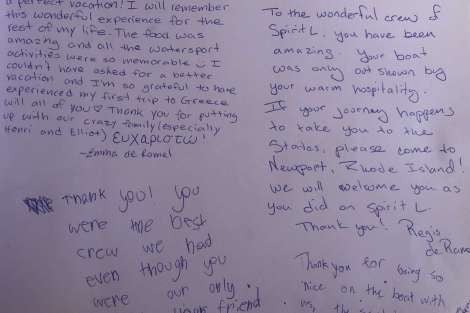 a perfect vacation! I will remember
this wonderful experience for the
rest of my life. The food was
amazing and all the watersport
activities were so memorable I
couldn't have asked for a better
vacation and I'm so grateful to have
experienced my first trip to Greece
with all of you ♡ Thank you for putting
up with our crazy family (especially
Henri and Elliot) ΕΥΧΑΡΙΣΤΩ!
-Emma de Ramel
Thank you! you
were the best
crew we had
even though you
were our only.
your friend
To the wonderful crew of
Spirit L. you have been
amazing. Your boat
was only out shown by
your warm hospitality.
If your journey happens
to take you to the
States, please come to
Newport, Rhode Island!
We will welcome you as
you did on Spirit L.
Thank you! Regis
de Ramel
Thank you for being so
nice on the boat with
us,